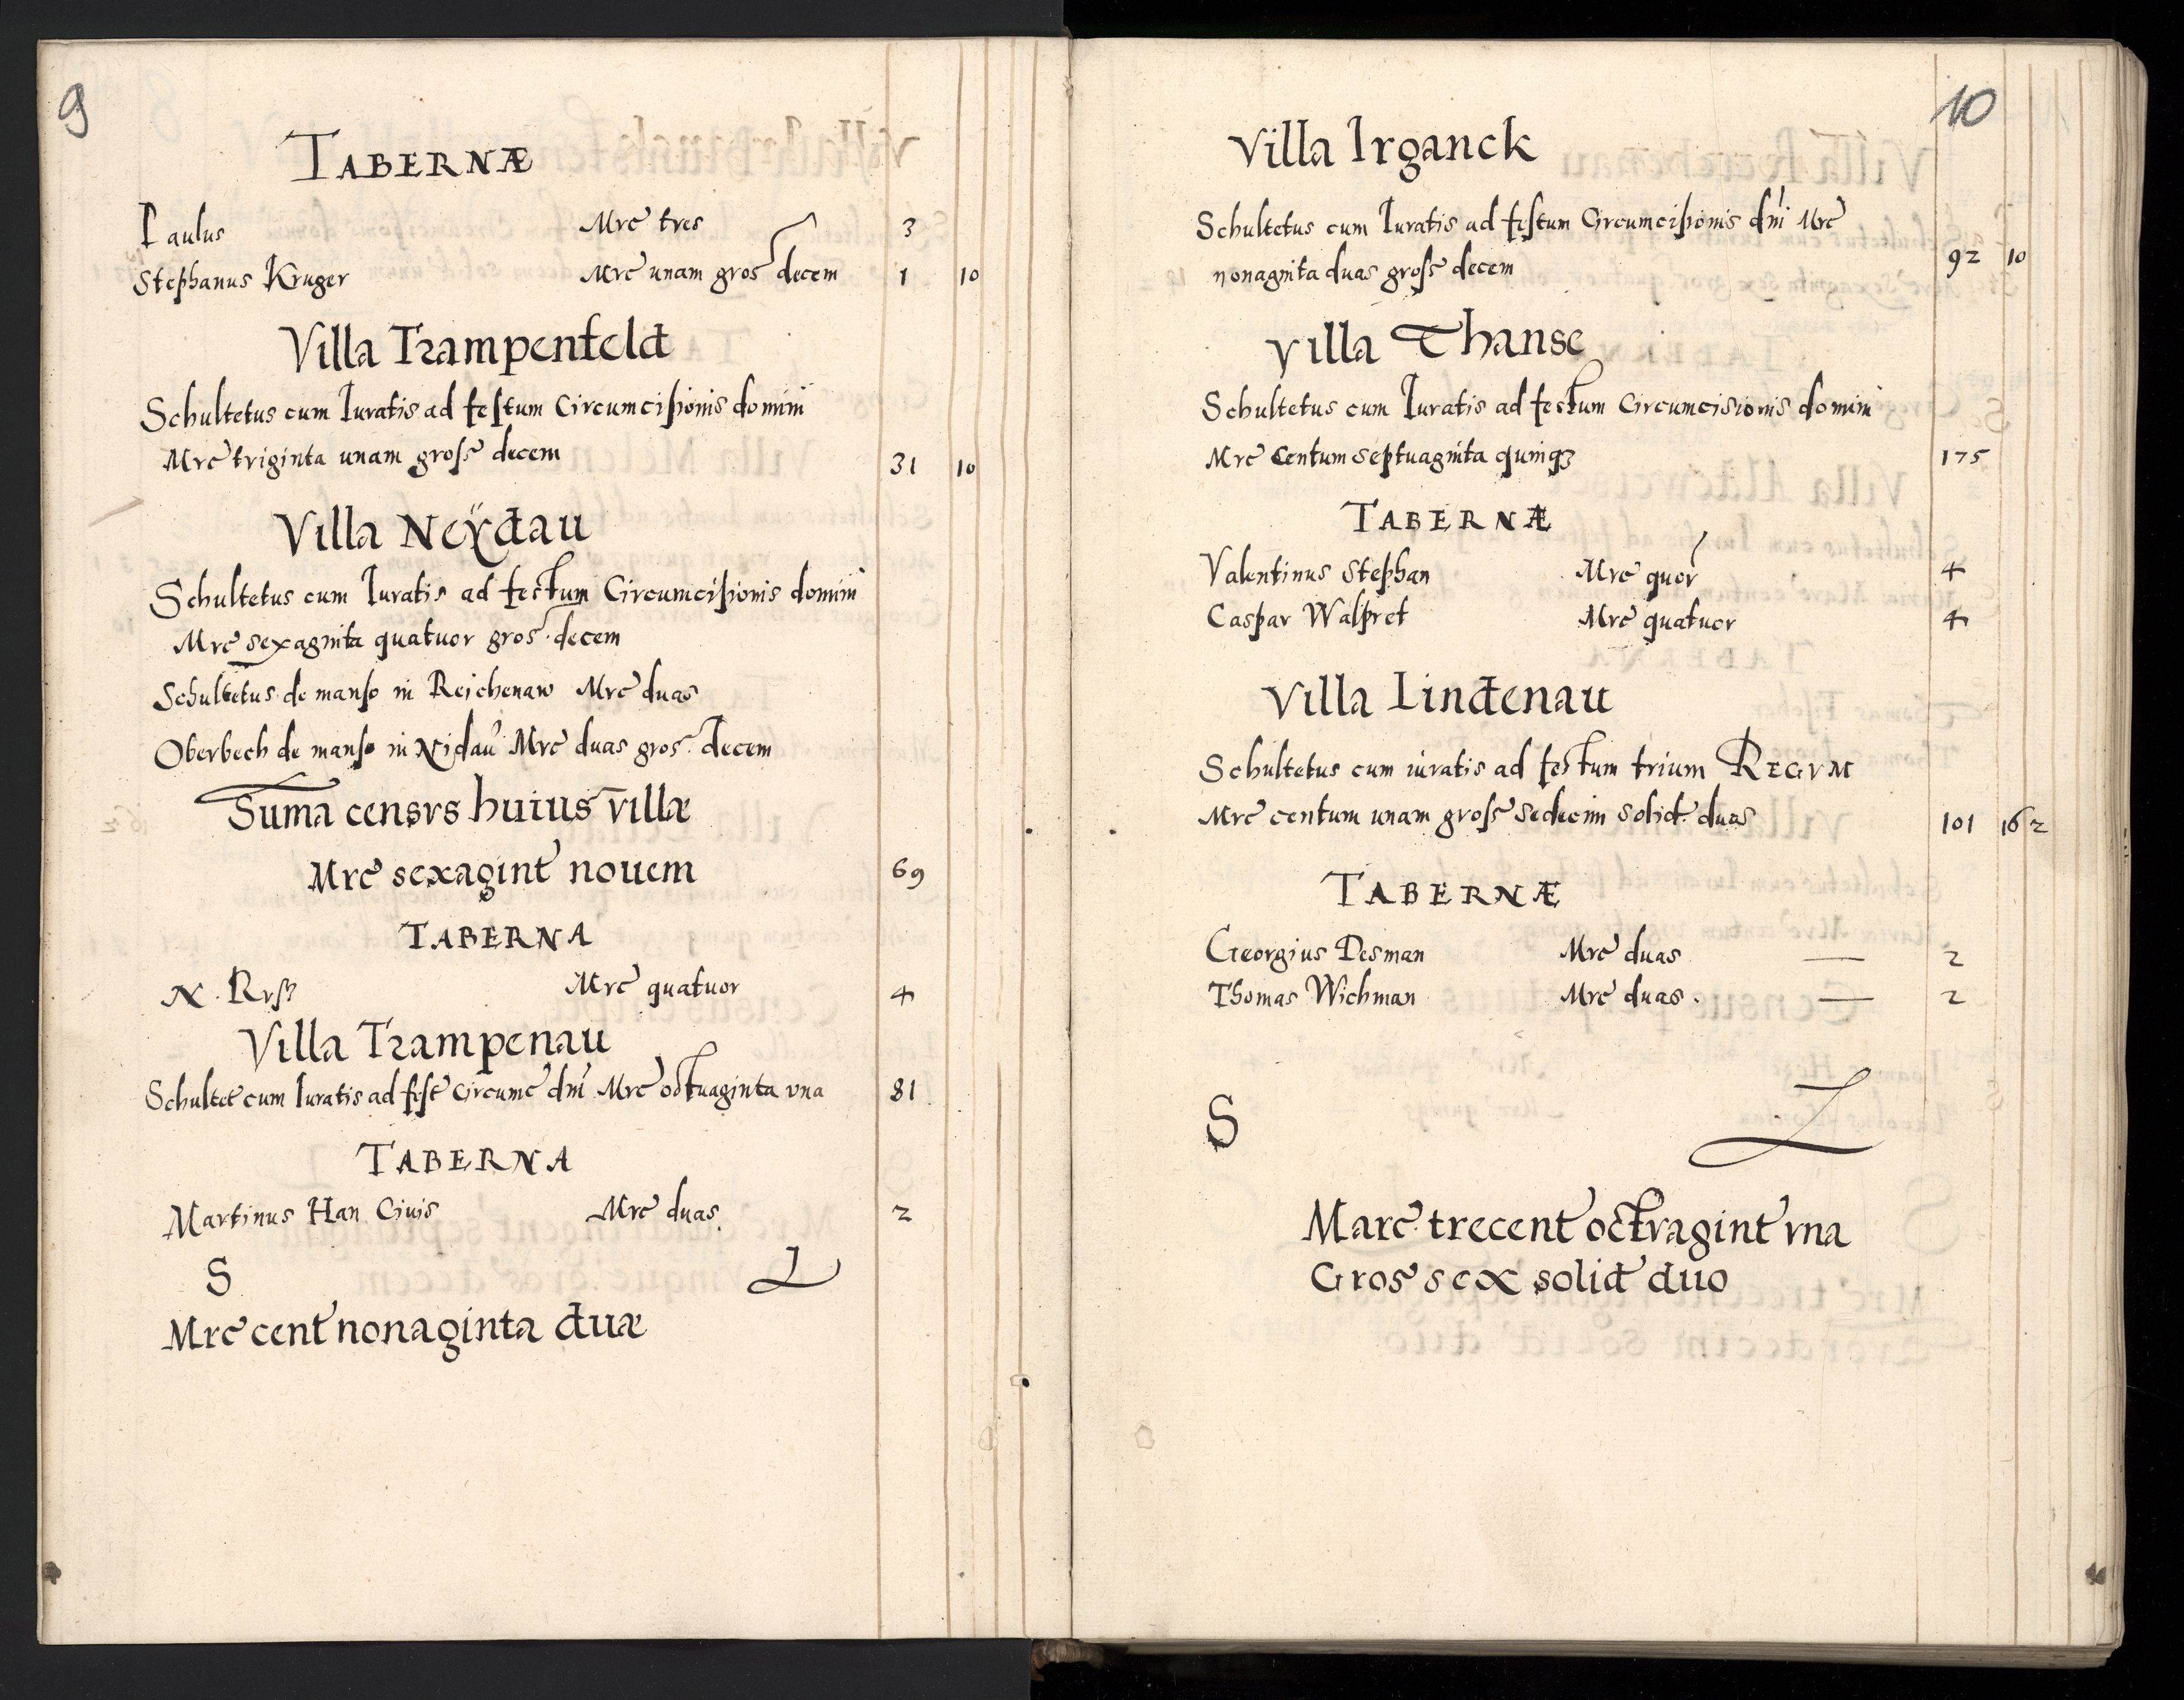 9
TABERNÆ
Paulus Mrc tres 3
Stephanus Kruger Mrc unam gros decem 1 10
Villa Trampenfeld
Schultetus cum Iuratis ad festum Circumcisionis domini
Mrc triginta unam gross decem 31 10
Villa Neÿdau
Schultetus cum Iuratis ad festum Circumcisionis domini
Mrc sexaginta quatuor gros decem
Schultetus de manso in Reichenaw Mrc duas
Oberbech de manso in Nidau Mrc duas gros decem
Suma censvs huius villæ
Mrc sexagint novem 69
TABERNA
N. Mrc quatuor 4
Villa Trampenau
Schultet cum Iuratis ad fest Circumc dni Mrc octuaginta vna 81
TABERNA
Martinus Han Civis Mrc duas 2
S L
Mrc cent nonaginta duæ
10
Villa Irganck
Schultetus cum Iuratis ad festum Circumcisionis dni Mrc
nonaginta duas gross decem 92 10
Villa Thanse
Schultetus cum Iuratis ad festum Circumcisionis domini
Mrc Centum septuaginta quinqꝫ 175
TABERNÆ
Valentinus Stephan Mrc quor 4
Caspar Walpret Mrc quatuor 4
Villa Lindenau
Schultetus cum iuratis ad festum trium REGVM
Mrc centum unam gross sedecim solid duos 101 16 2
TABERNÆ
Georgius Desman Mrc duas — 2
Thomas Wichman Mrc duas. — 2
S L
Marc trecent octvagint vna
Gros sex solid duo